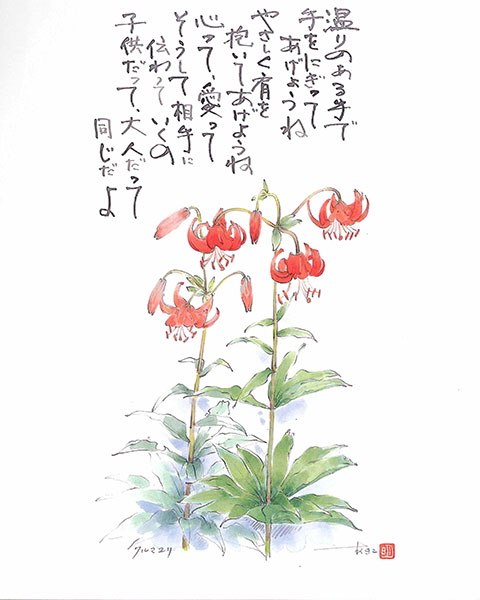 温りのある手で
手をにぎって
あげようね
やさしく肩を
抱いてあげようね
心って、愛って
そうして相手に
伝わっていくの
子供だって、大人だって
同じだよ
クルマユリ